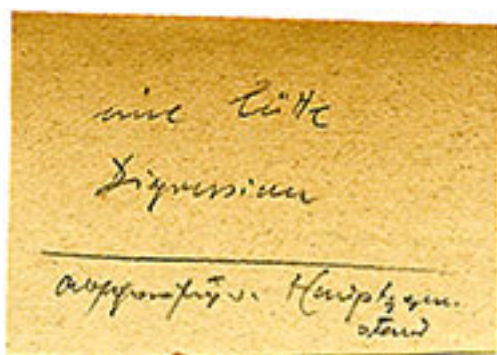 eine lütte
Digression
Abschweifg v. Hauptgegen-
stand